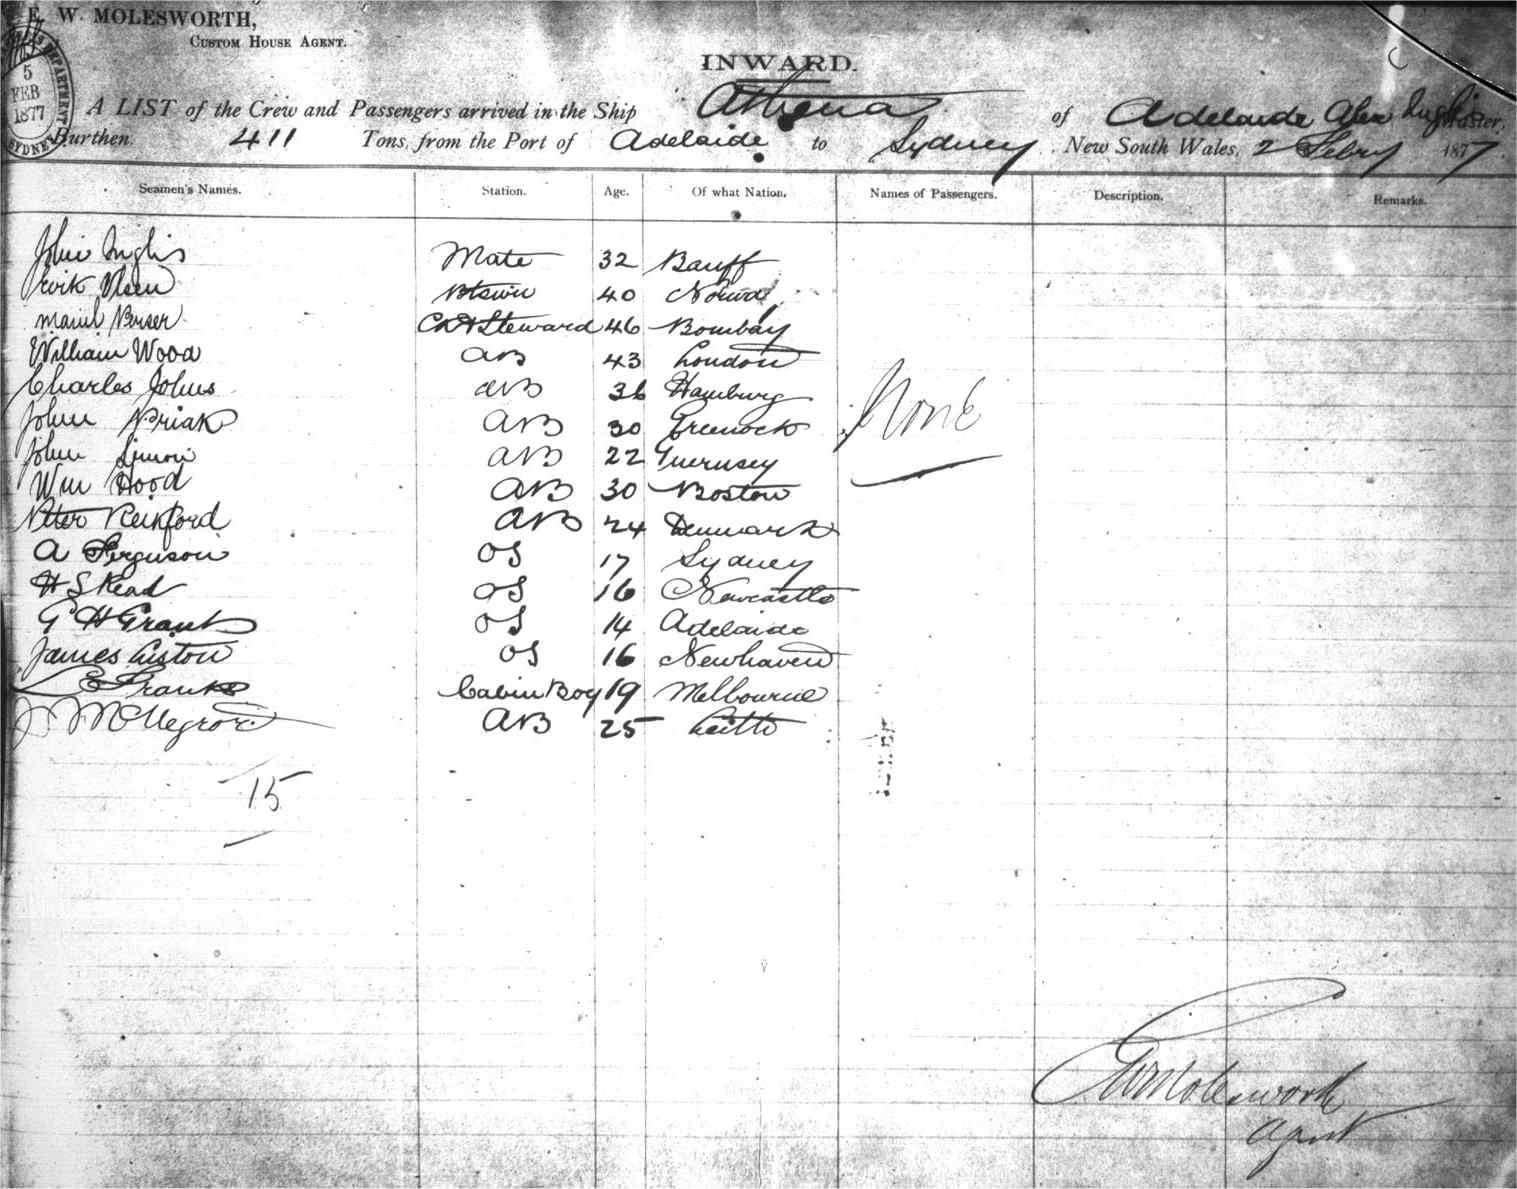 E. W. MOLESWORTH,
CUSTOM HOUSE AGENT.
5
FEB
1877
SYDNEY
INWARD.
A LIST of the Crew and Passengers arrived in the Ship Athena of Adelaide Alex Inglis Master,
Burthen 411 Tons, from the Port of Adelaide to Sydney, New South Wales, 2 Febry 1877
Seamen's Names. Station. Age. Of what Nation. Names of Passengers. Description. Remarks.
John Inglis Mate 32 Banff
Olsen Btswn 40 Norway
Ck & Steward 46 Bombay
William Wood AB 43 London
Charles Johns AB 36 Hamburg
John AB 30 Greenock
None
John Simon AB 22 Guernsey
Wm Hood AB 30 Boston
Peter AB 24 Denmark
A Ferguson OS 17 Sydney
H S Read OS 16 Newcastle
G H Grant OS 14 Adelaide
James Liston OS 16 Newhaven
Franks Cabin Boy 19 Melbourne
J McNegro AB 25 Leith
15
EW Molesworth
Agent